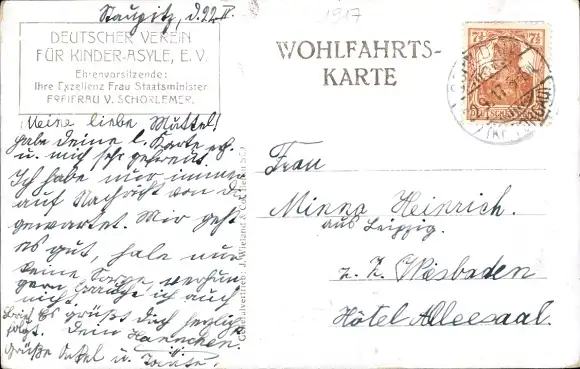 Staupitz, d. 22.
1917
DEUTSCHER VEREIN
FÜR KINDER-ASYLE, E.V.
Ehrenvorsitzende:
Ihre Exzellenz Frau Staatsminister
FREIFRAU V. SCHORLEMER.
WOHLFAHRTS-
KARTE
7½ 7½
Meine liebe Muttel!
habe deine l. Karte erh.
u. mich sehr gefreut.
Ich habe nur immer
auf Nachricht von dir
gewartet. Mir geht
es gut, habe nur
keine Sorge, verhun-
gern brauche ich auch
nicht.
Brief Es grüßt dich herzlich
folgt. Dein Hannchen.
Grüße Onkel u. Tante.
Generalvertrieb: J. Wieland & Co.
Frau
Minna Heinrich.
aus Leipzig.
z. Z. Wiesbaden
Hôtel Alleesaal.